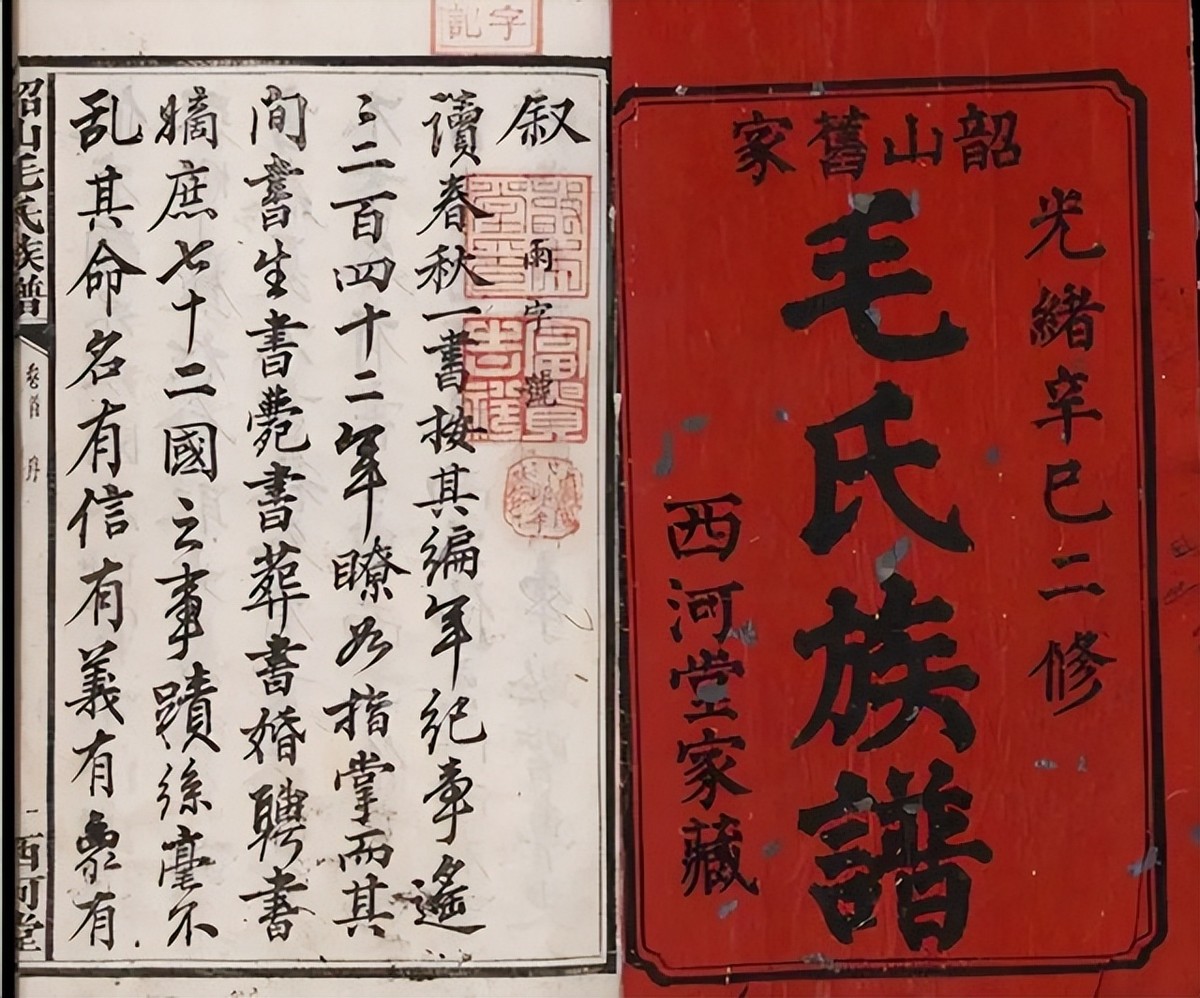 韶山舊家
光緒辛巳二修
毛氏族譜
西河堂家藏
叙
雨字號
讀春秋一書按其編年紀事遙
〻二百四十二年瞭如指掌而其
间書生書薨書葬書婚聘書
嫡庶七十二國之事蹟絲毫不
乱其命名有信有義有象有
韶山毛氏族譜
卷首
序
一
西河堂
富貴
吉祥
字記